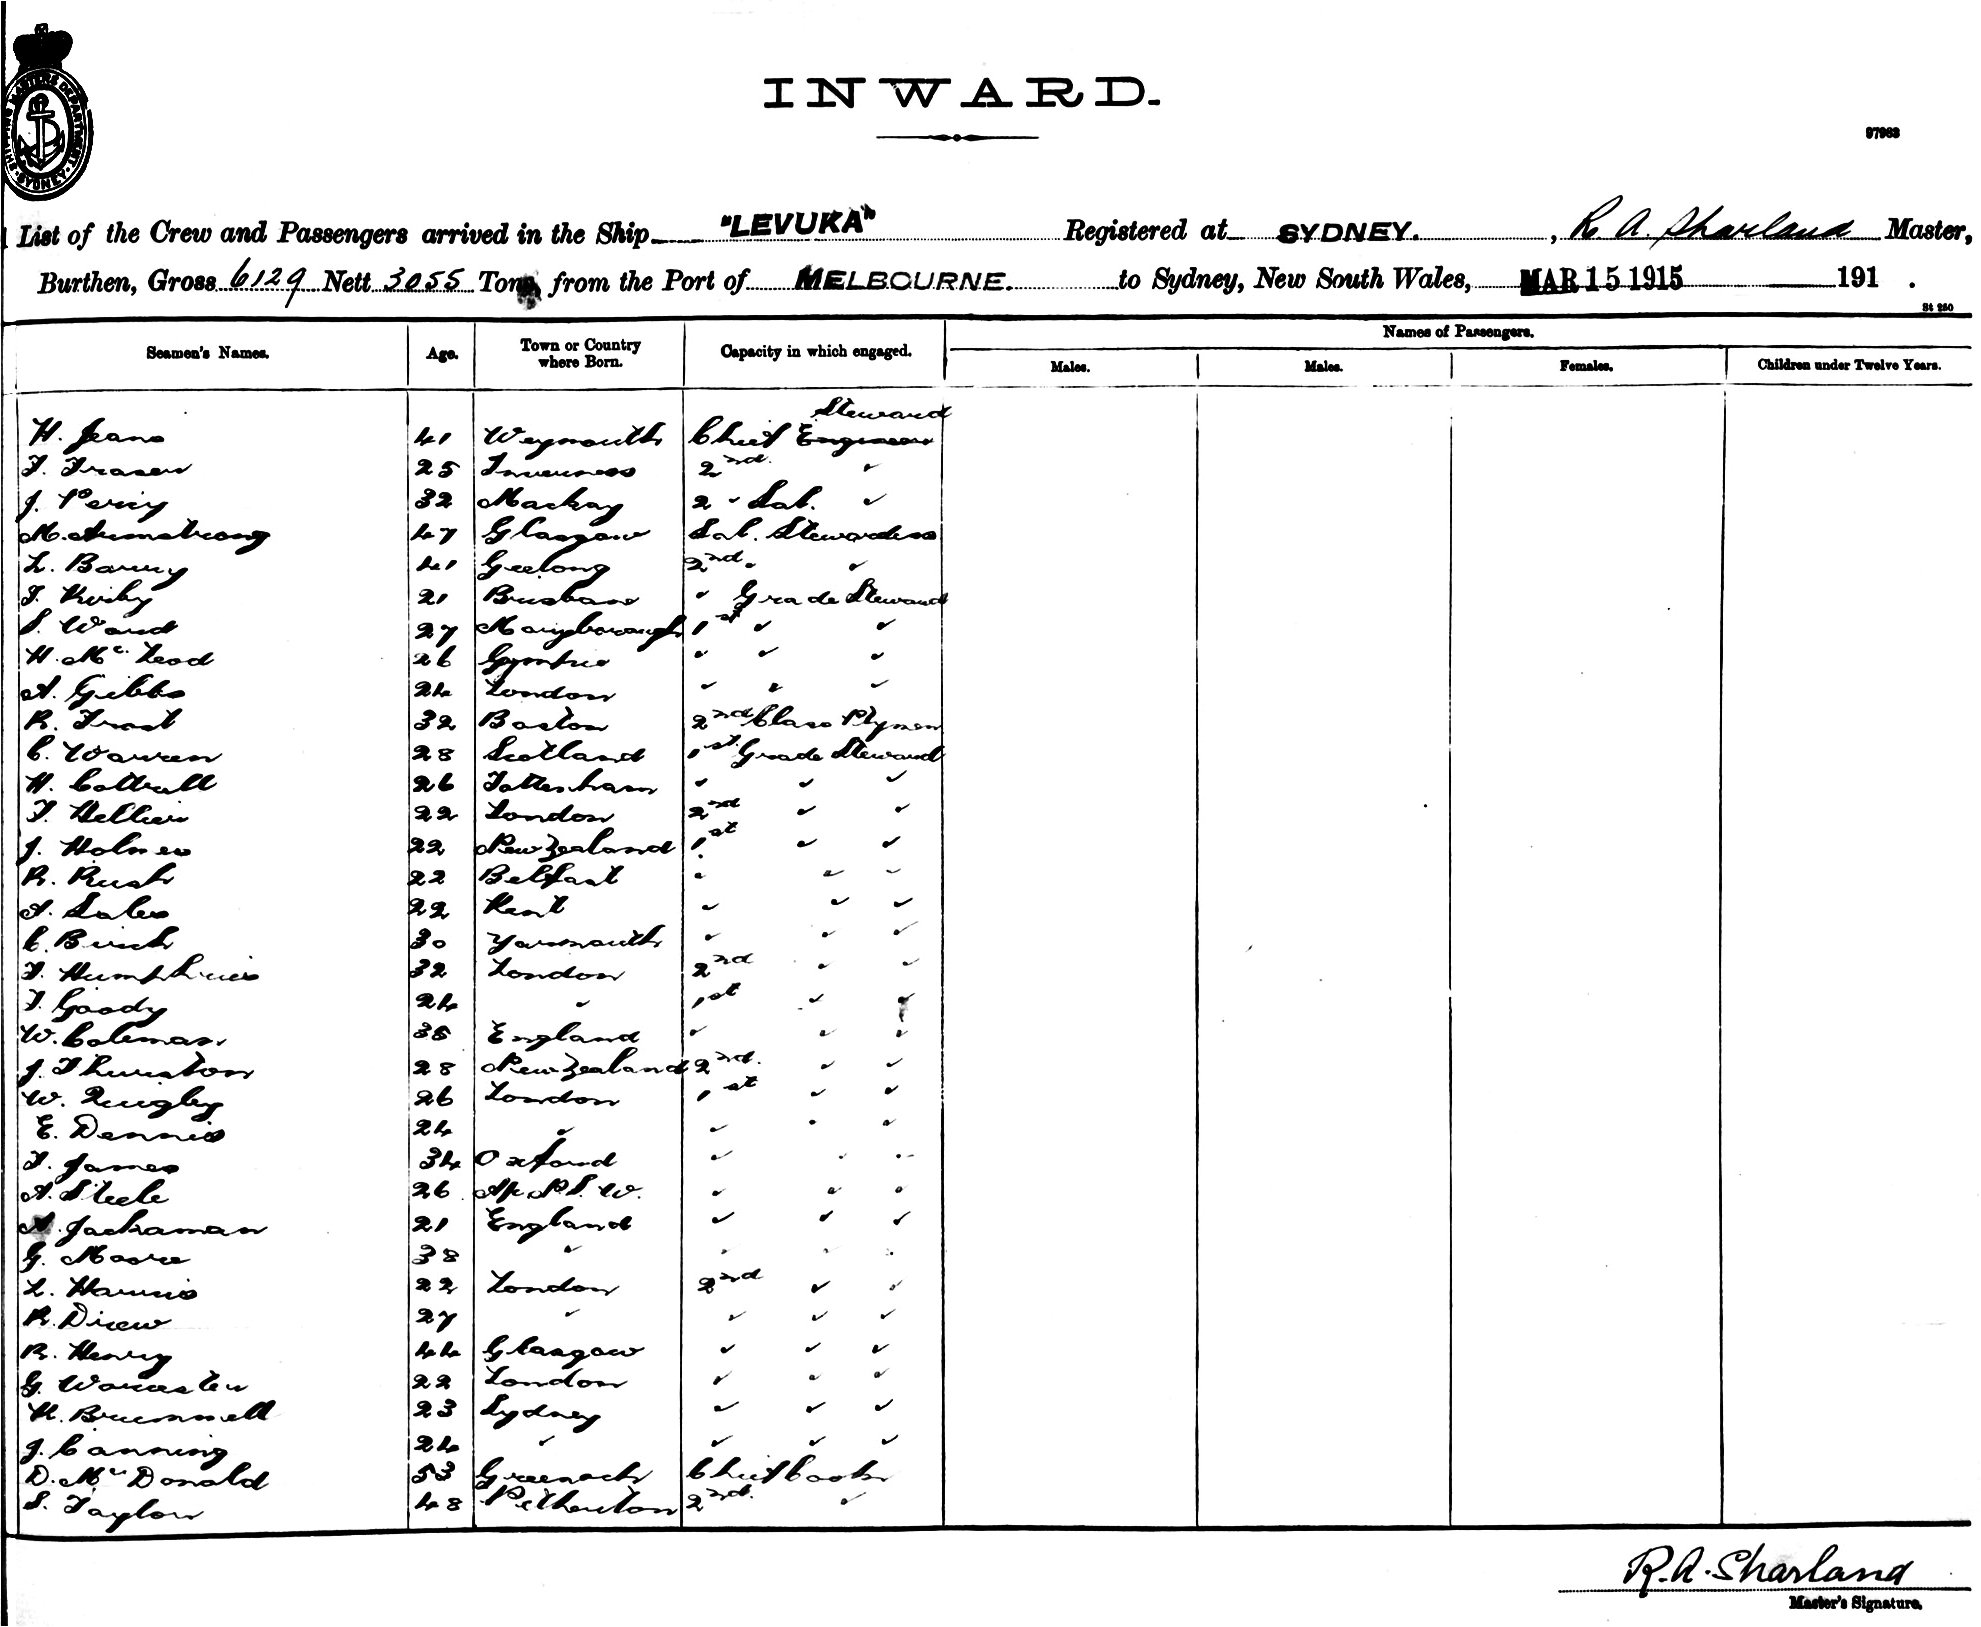 SHIPPING MASTERS DEPARTMENT · SYDNEY ·
INWARD.
97983
List of the Crew and Passengers arrived in the Ship "LEVUKA" Registered at SYDNEY. , R. A. Sharland Master,
Burthen, Gross 6129 Nett 3055 Tons, from the Port of MELBOURNE. to Sydney, New South Wales, MAR 15 1915 191 .
St 250
Seamen's Names. Age. Town or Country where Born. Capacity in which engaged. Names of Passengers.
Males. Males. Females. Children under Twelve Years.
Steward
H. Jeans 41 Weymouth Chief Engineer
F. Fraser 25 Inverness 2nd. "
J. Percy 32 Mackay 2 " Sal. "
M. Armstrong 47 Glasgow Sal. Stewardess
L. Barry 41 Geelong 2nd. " "
F. Kirby 21 Brisbane " Grade Steward
S. Ward 27 Maryborough 1st " "
H. McLeod 26 Gympie " " "
A. Gibbs 24 London " " "
R. Frost 32 Boston 2nd Class Ptymen
C. Warren 28 Scotland 1st. Grade Steward
H. Cottrell 26 Tottenham " " "
F. Hellier 22 London 2nd " "
J. Holmes 22 New Zealand 1st " "
R. Rush 22 Belfast " " "
A. Sales 22 Kent " " "
C. Birch 30 Yarmouth " " "
F. Humphries 32 London 2nd " "
F. Goody 24 " 1st " "
W. Coleman 35 England " " "
J. Thurston 28 New Zealand 2nd. " "
W. Quigley 26 London 1st " "
E. Dennis 24 " " " "
F. James 34 Oxford " " "
A. Steele 26 N.S.W. " " "
A. Jackaman 21 England " " "
G. Moore 38 " " " "
L. Harris 22 London 2nd " "
R. Drew 27 " " " "
R. Henry 44 Glasgow " " "
G. Worcester 22 London " " "
H. Brummell 23 Sydney " " "
J. Canning 24 " " " "
D. McDonald 53 Greenock Chief Cook
S. Taylor 48 Petherton 2nd. "
R. A. Sharland
Master's Signature.